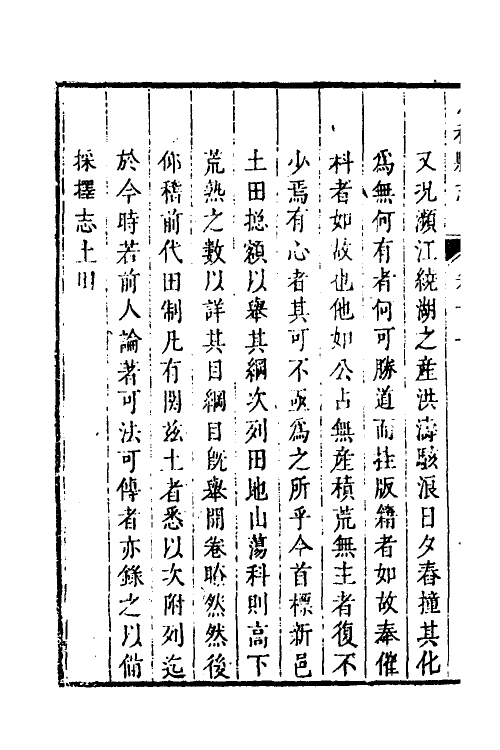 又况瀕江繞湖之產洪濤駭浪日夕舂撞其化
爲無何有者何可勝道而挂版籍者如故奉催
科者如故也他如公占無產積荒無主者復不
少焉有心者其可不亟爲之所乎今首標新邑
土田揔額以舉其綱次列田地山蕩科則高下
荒熟之數以詳其目綱目旣舉開卷瞭然然後
仰稽前代田制凡有関玆土者悉以次附列迄
於今時若前人論著可法可傳者亦錄之以俻
採擇志土田